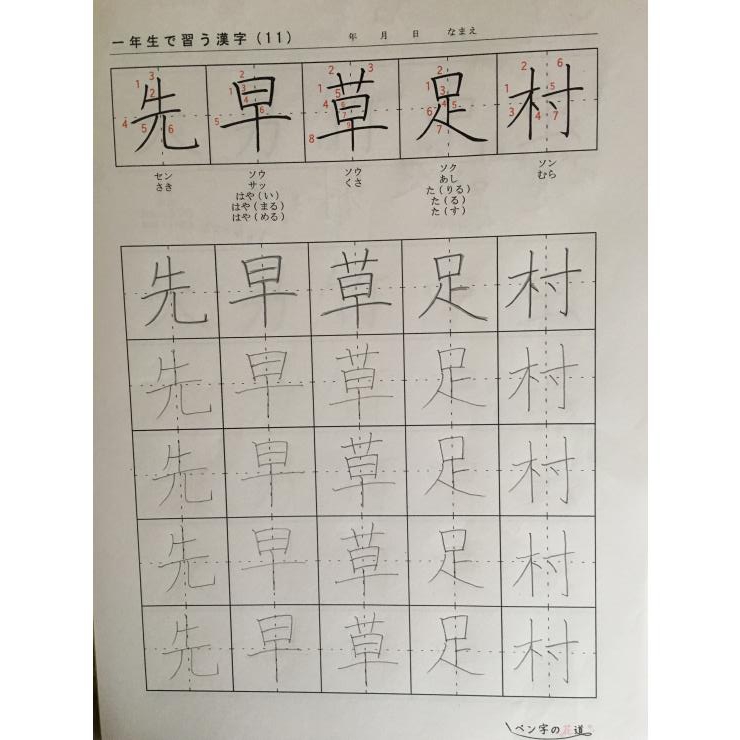 一年生で習う漢字(11) 年 月 日 なまえ
先 早 草 足 村
セン ソウ ソウ ソク ソン
さき サッ くさ あし むら
はや(い) た(りる)
はや(まる) た(る)
はや(める) た(す)
先 早 草 足 村
先 早 草 足 村
先 早 草 足 村
先 早 草 足 村
先 早 草 足 村
ペン字の花道